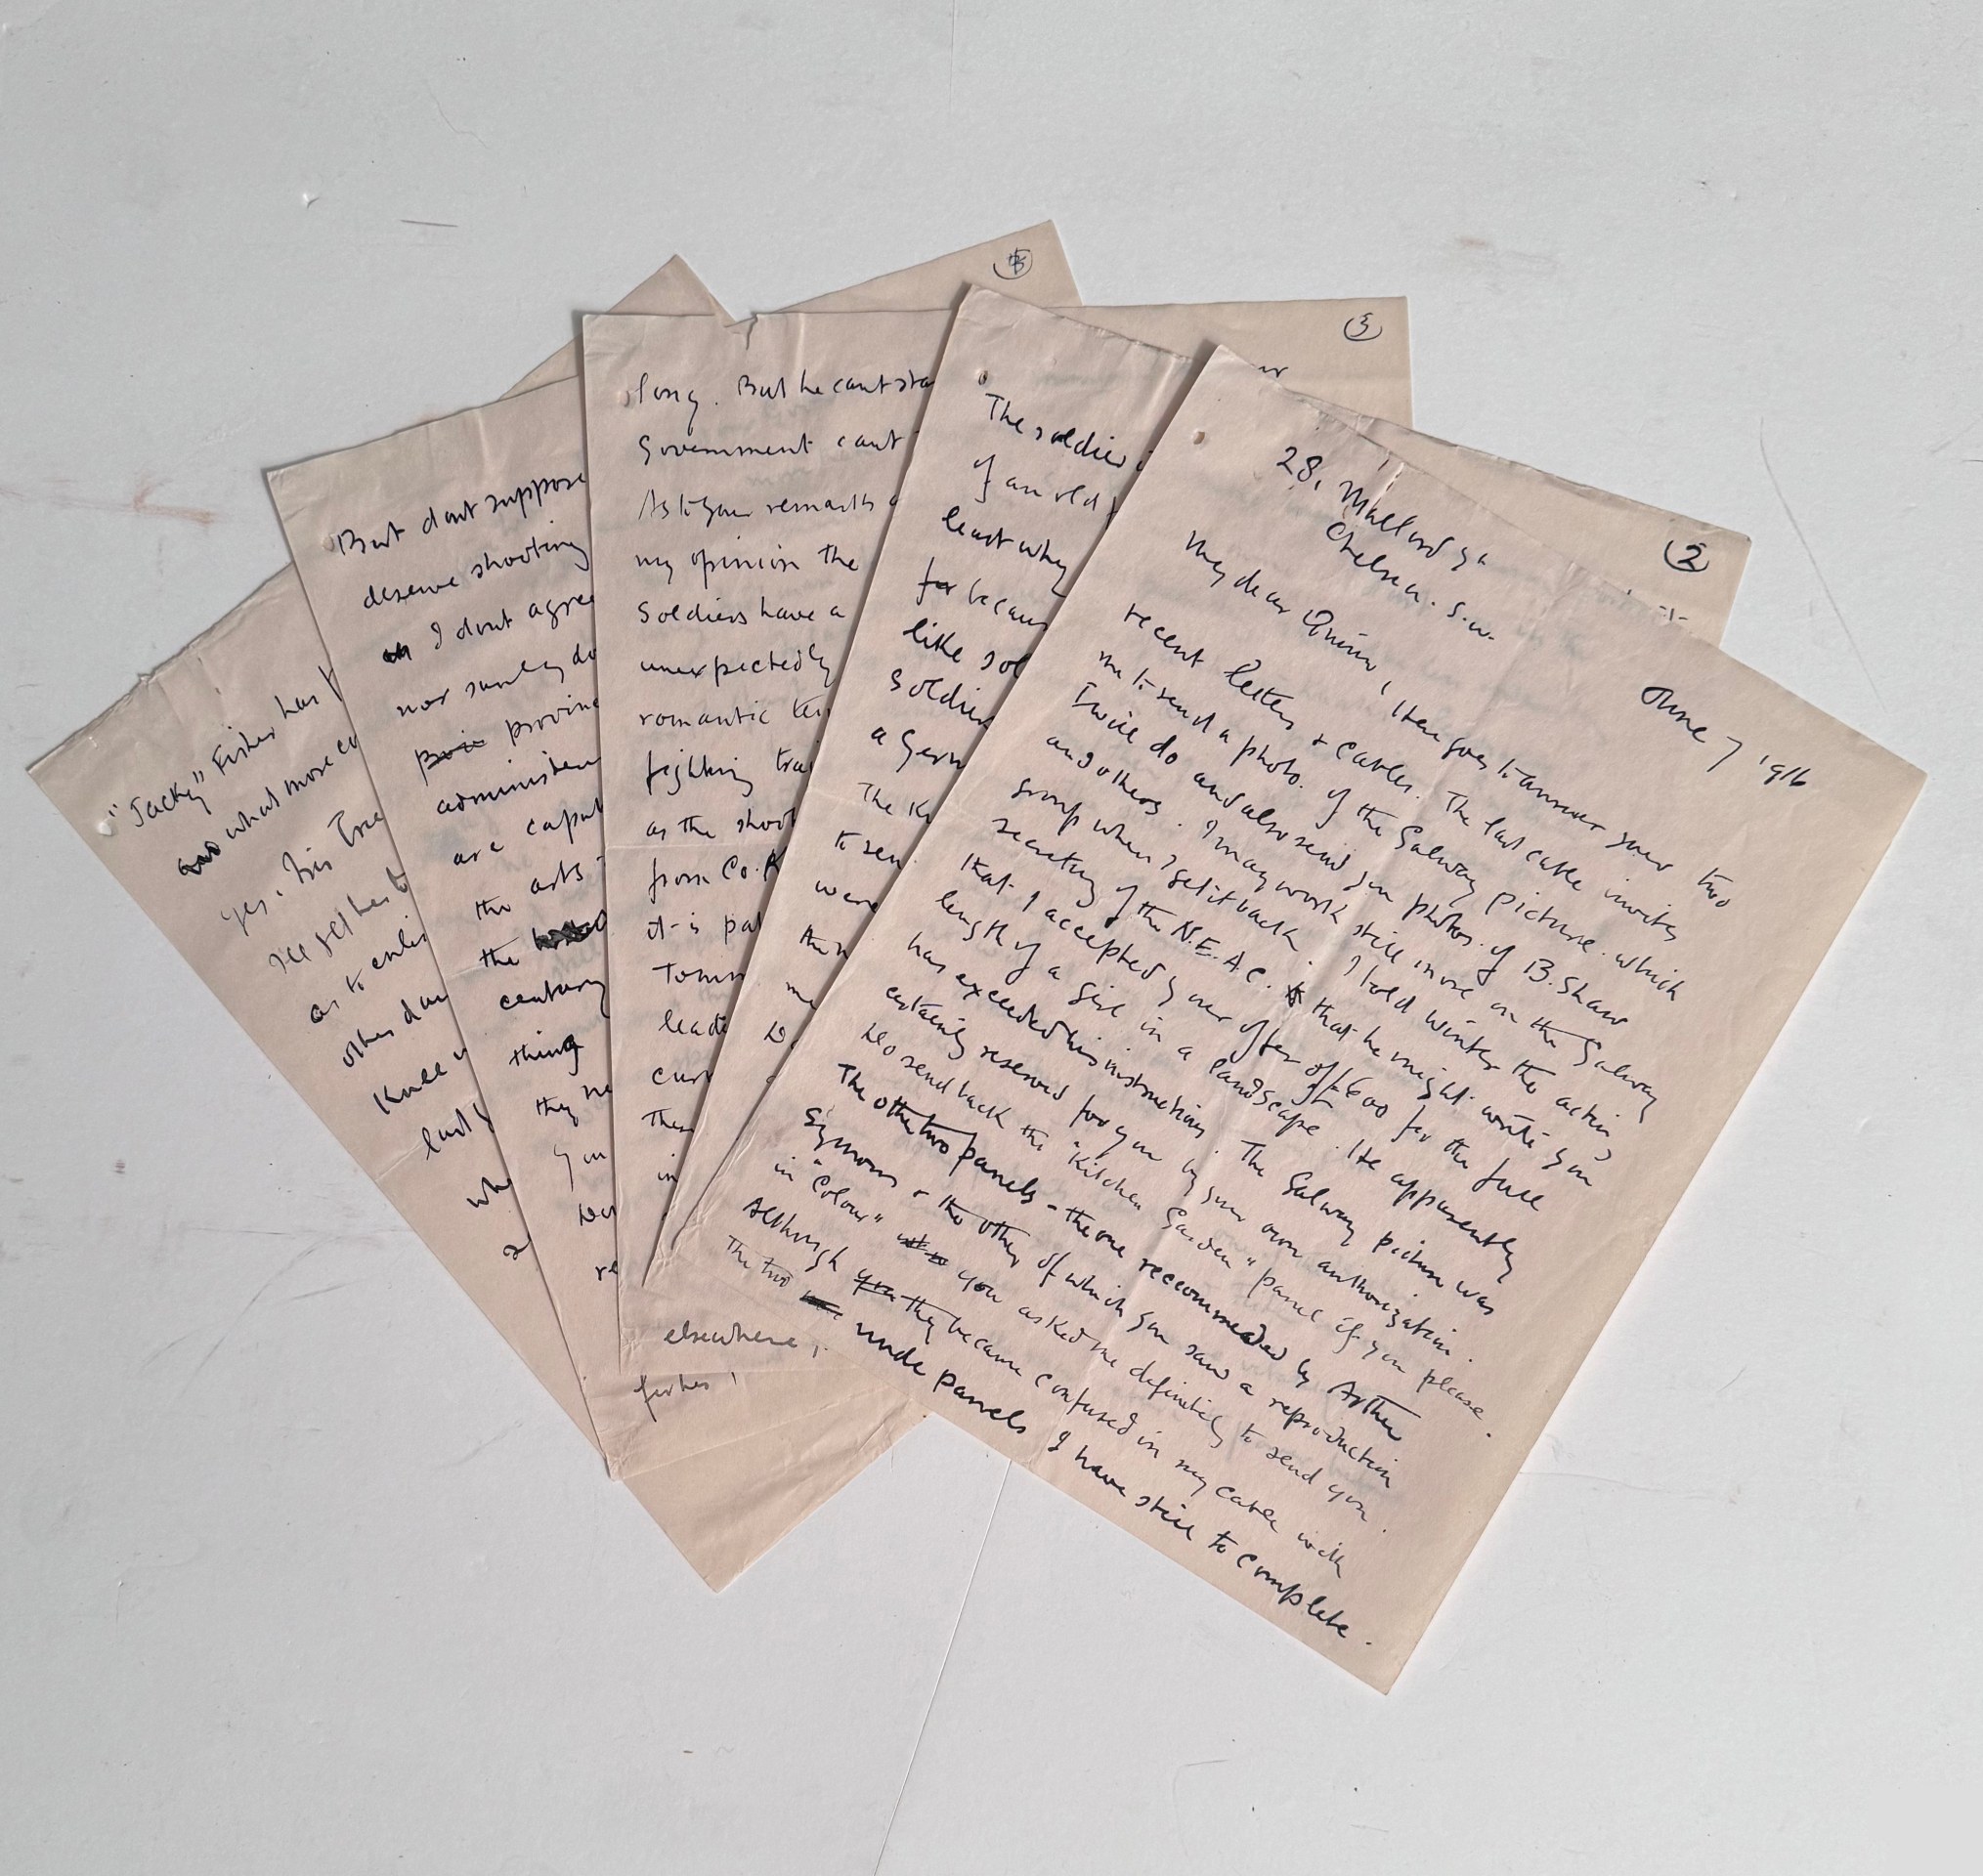 28, Mallord St
Chelsea. S.W.
June 7 1916
My dear Quinn, Here goes to answer your two
recent letters & cables. The last cable invites
me to send a photo. of the Galway picture. which
I will do and also send you photos. of B. Shaw
and others. I may work still more on the Galway
group when I get it back. I told Winter the acting
secretary of the N.E.A.C. that he might write you
that I accepted your offer of £600 for the full
length of a girl in a landscape. He apparently
has exceeded his instructions. The Galway picture was
certainly reserved for you by your own authorization.
Do send back the "Kitchen Garden" panel if you please.
The other two panels - the one recommended by Arthur
Symons & the other of which you saw a reproduction
in "Colour" you asked me definitely to send you.
Although you they became confused in my cable with
The two nude panels I have still to complete.
②
The soldier
of an old
least why
for becaus
like sol
Soldier
a Germ
The K
to sen
were
then
me
③
long. But he cant sta
Government cant
As to your remarks
my opinion the
Soldiers have a
unexpectedly
romantic tem
fighting tra
as the shoot
from Co. K
it is pa
Tomm
leade
curs
These
in
elsewhere,
But dont suppose
deserve shooting
I dont agree
nor surely do
provinc
administer
are capab
the arts
the
century
thing
they ne
you
re
"Jacky" Fisher has
and what more co
yes. his Tree
I'll get her to
as to enlis
other day
Knee
lastly